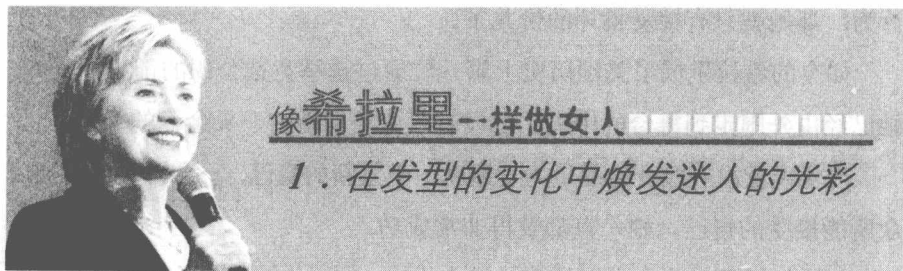 像希拉里一样做女人
1.在发型的变化中焕发迷人的光彩